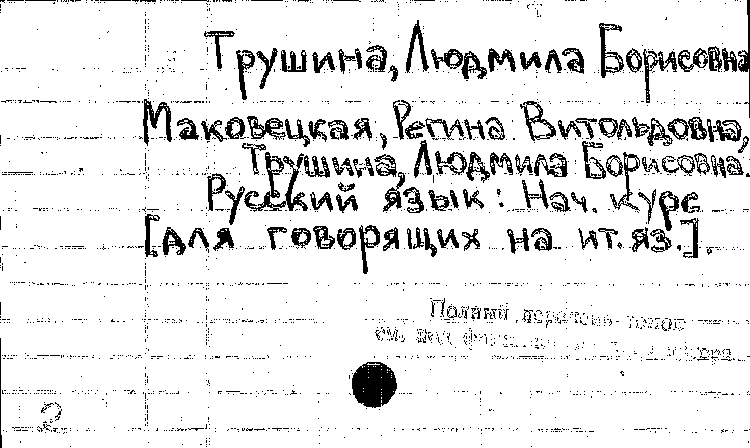 Трушина, Людмила Борисовна
Маковецкая, Регина Витольдовна,
Трушина, Людмила Борисовна.
Русский язык : Нач. курс
[для говорящих на ит. яз.].
Полный
см.
2